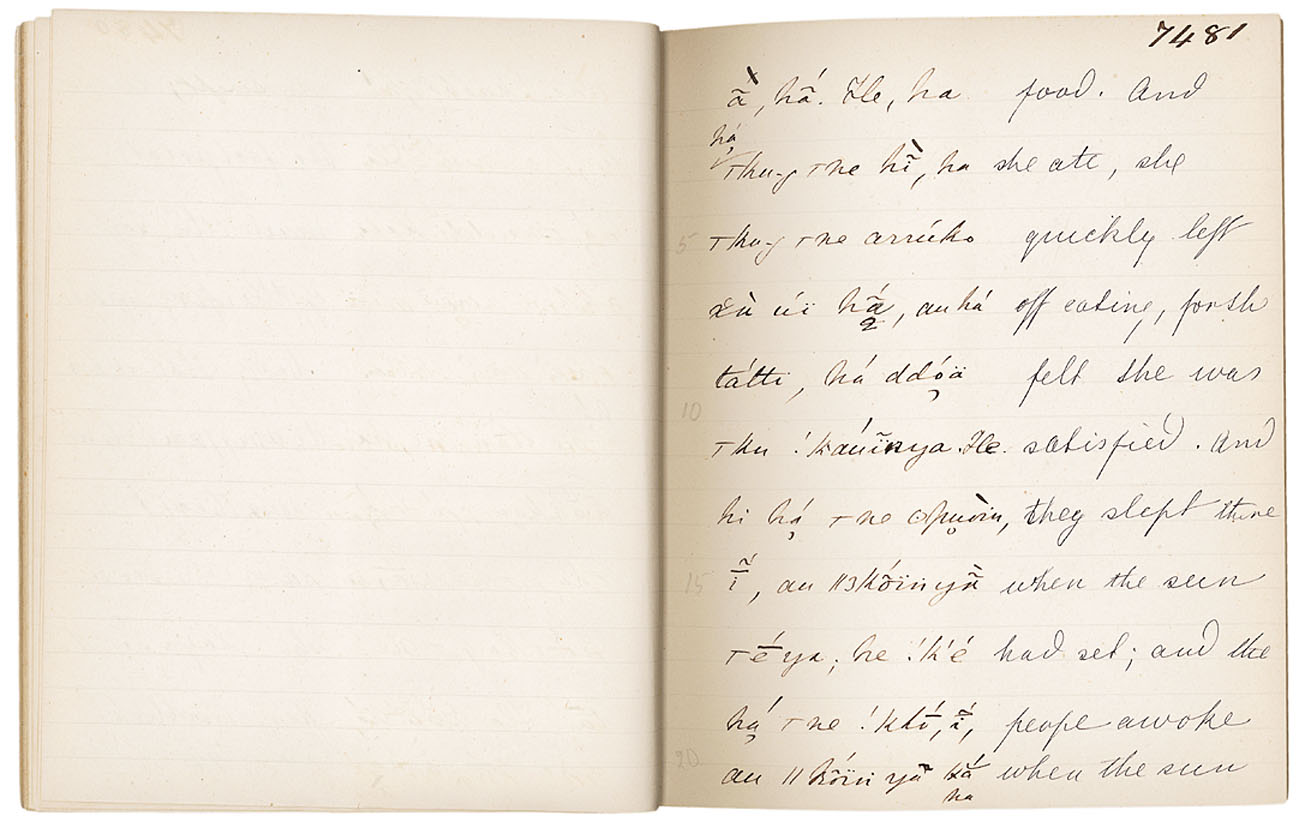 7481
ã̀, hã́. He, ha food. And
há̦
⊤ku-g ⊤ne hĩ̀, ha she ate, she
5 ⊤ku-g ⊤ne arrúko quickly left
úï há̱, au há off eating, for she
tátti, há ddó̦ä felt she was
10
⊤ku !káuïnya. He satisfied. And
hi há̦ ⊤ne opuòin, they slept there
15 ī́, au ||kóïnyã̀ when the sun
⊤ḗya; he !k'é had set; and the
há̦ ⊤ne ī́, peope awoke
20 au ||kóïnyã when the sun
ha